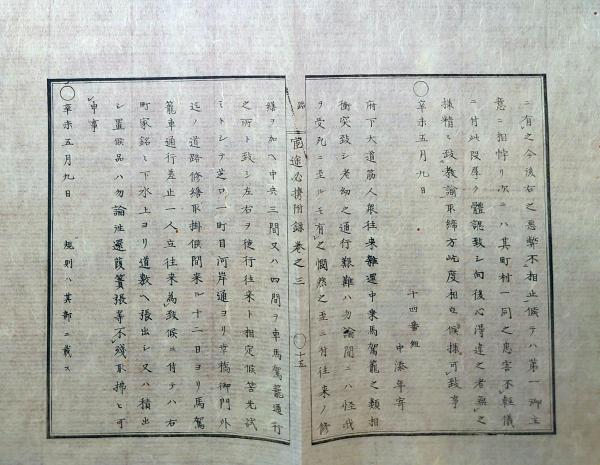 ニ有之今後右之悪弊不相止候テハ第一御主
意ニ相悖リ次ニハ其町村一同之患害不軽儀
ニ付此段厚ク體認致シ向後心得違之者無之
様精々致教諭取締方屹度相立候様可致事
〇辛未五月九日
十四番組
中添年寄
府下大道筋人衆往来難遝中乗馬駕籠之類相
衝突致シ老幼之通行艱難ハ勿論間ニハ怪我
ヲ受死ニ至ルモ有之憫然之至ニ付往来ノ修
路
官途必携附録巻之三
〇十五
繕ヲ加ヘ中央三間又ハ四間ヲ車馬駕籠通行
之所ト致シ左右ヲ徒行往来ト相定候筈先試
ミトシテ芝口一町目河岸通ヨリ幸橋御門外
迄ノ道路修繕取掛候間来ル十二日ヨリ馬駕
籠車通行差止一人立往来為致候ニ付テハ右
町家銘々下水上ヨリ道敷ヘ張出シ又ハ積出
シ置候品ハ勿論往還葭簀張等不残取拂ヒ可
申事
〇辛未五月九日
規則ハ其部ニ載ス